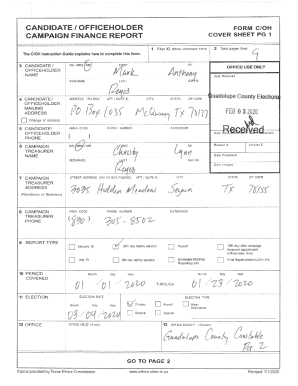 CANDIDATE / OFFICEHOLDER
CAMPAIGN FINANCE REPORT
FORM C/OH
COVER SHEET PG 1
The C/OH Instruction Guide explains how to complete this form.
1 Filer ID (Ethics Commission Filers)
2 Total pages filed:
9
3 CANDIDATE / OFFICEHOLDER NAME
MS / MRS / MR FIRST MI
Mark Anthony
NICKNAME LAST SUFFIX
Reyes
OFFICE USE ONLY
Date Received
Guadalupe County Elections
FEB 03 2020
Received
4 CANDIDATE / OFFICEHOLDER MAILING ADDRESS
Change of Address
ADDRESS / PO BOX; APT / SUITE #; CITY; STATE; ZIP CODE
PO Box 1035 McQueeney TX
5 CANDIDATE / OFFICEHOLDER PHONE
AREA CODE PHONE NUMBER EXTENSION
6 CAMPAIGN TREASURER NAME
MS / MRS / MR FIRST MI
Lynn
NICKNAME LAST SUFFIX
Reyes
Receipt # Amount $
Date Processed
Date Imaged
7 CAMPAIGN TREASURER ADDRESS
(Residence or Business)
STREET ADDRESS (NO PO BOX PLEASE); APT / SUITE #; CITY; STATE; ZIP CODE
3095 Hidden Meadows Seguin TX 78155
8 CAMPAIGN TREASURER PHONE
AREA CODE PHONE NUMBER EXTENSION
(830) 305-8502
9 REPORT TYPE
January 15
30th day before election
Runoff
15th day after campaign treasurer appointment (Officeholder Only)
July 15
8th day before election
Final Report (Attach C/OH - FR)
10 PERIOD COVERED
Month Day Year
01/01/2020 THROUGH 01/23/2020
11 ELECTION
ELECTION DATE
Month Day Year
ELECTION TYPE
Primary
Runoff
Other Description
General
Special
12 OFFICE
OFFICE HELD (if any)
13 OFFICE SOUGHT (if known)
Guadalupe County Constable
Pct. 2
GO TO PAGE 2
Forms provided by Texas Ethics Commission
www.ethics.state.tx.us
Revised 1/1/2020